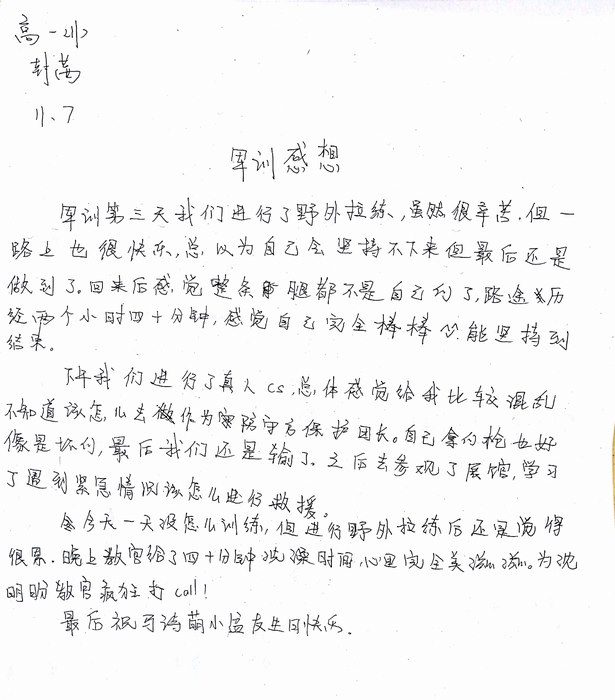 高一
封
11、7
军训感想
军训第三天我们进行了野外拉练,虽然很辛苦,但一
路上也很快乐,总以为自己会坚持不下来但最后还是
做到了。回来后感觉整条腿都不是自己的了,路途历
经两个小时四十分钟,感觉自己完全棒棒能坚持到
结果。
下午我们进行了真人cs,总体感觉给我比较混乱
不知道该怎么去做作为防守方保护团长。自己拿的枪也好
像是坏的,最后我们还是输了。之后去参观了展馆,学习
了遇到紧急情况该怎么进行救援。
今天一天没怎么训练,但进行野外拉练后还是觉得
很累.晚上教官给了四十分钟洗澡时间,心里完全美滋滋。为沈
明盼教官疯狂打call!
最后祝萌小盆友生日快乐.